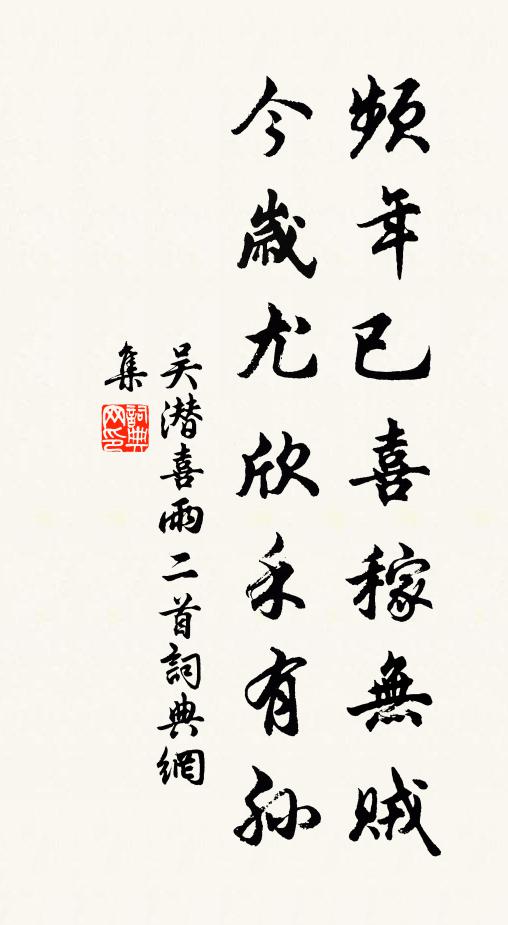 頻年已喜稼無賊
今歲尤欣禾有孫
吴潛喜雨二首詞典網
集
詞典網印